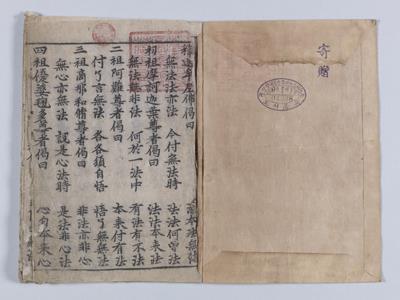 寄贈
釋迦牟尼佛偈曰 法本法無法
無法法亦法 今付無法時 法法何曾法
初祖摩訶迦葉尊者偈曰 法法本來法
無法無非法 何於一法中 有法有不法
二祖阿難尊者偈曰 本來付有法
付了言無法 各各須自悟 悟了無無法
三祖商那和脩尊者偈曰 非法亦非心
無心亦無法 說是心法時 是法非心法
四祖優婆毱多尊者偈曰 心自本來心